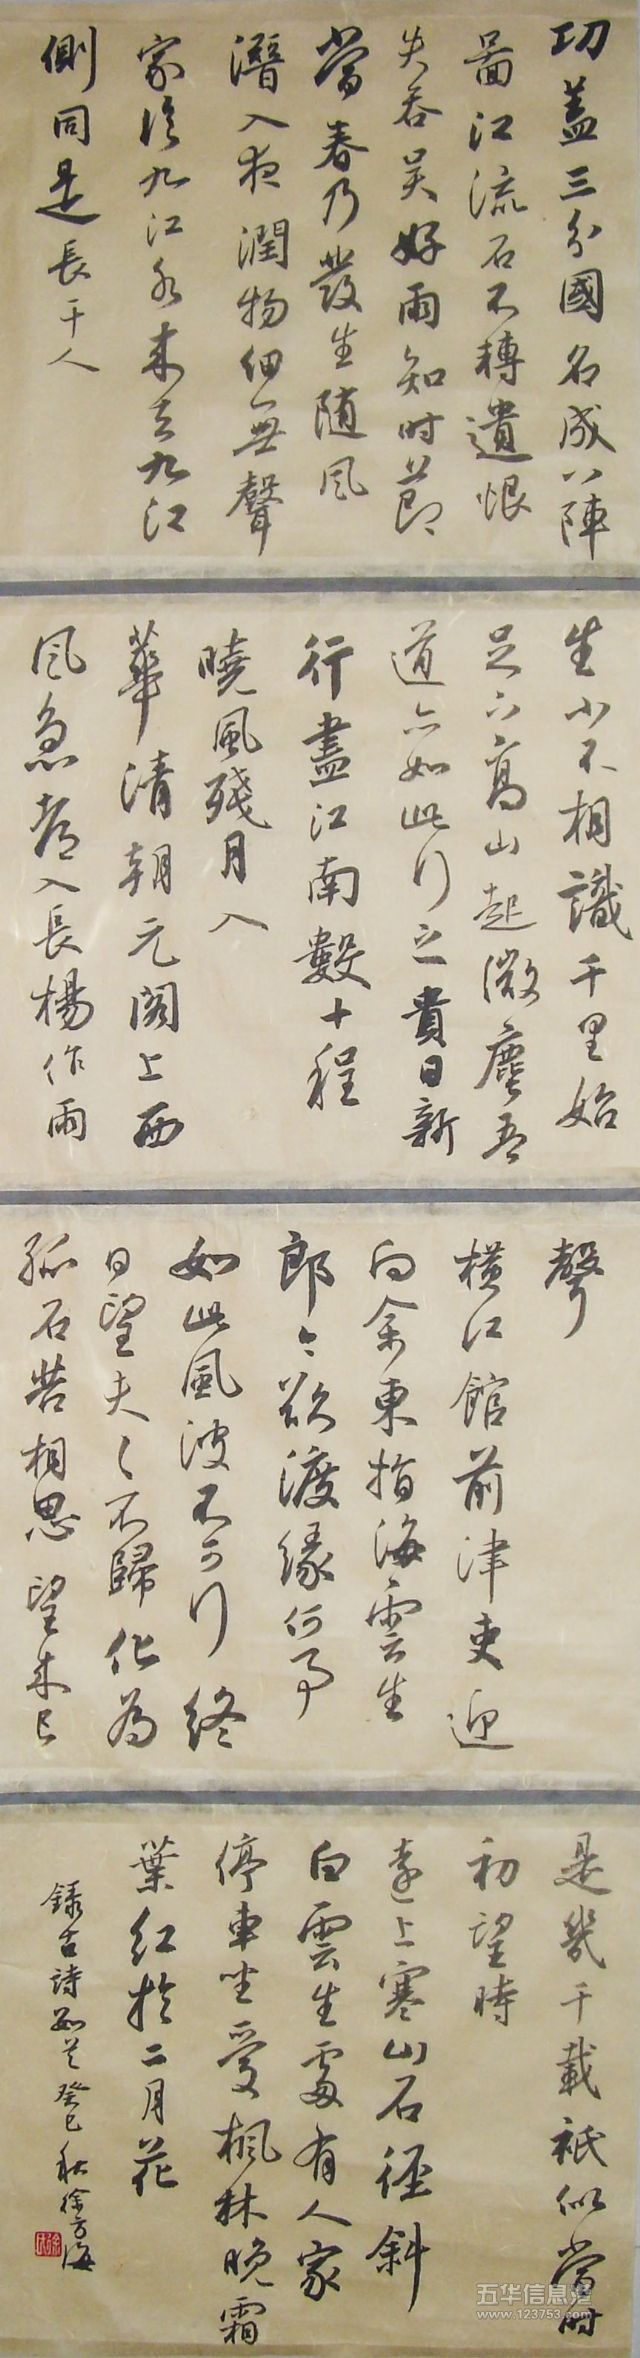 功蓋三分國名成八陣
圖江流石不轉遺恨
失吞吴好雨知时節
當春乃發生随风
潛入夜潤物细無聲
家临九江水来去九江
側同是長干人
生小不相識千里始
足下高山起微塵吾
道亦如此行之貴日新
行盡江南數十程
曉風殘月入
華清朝元閣上西
风急都入長楊作雨
聲
横江館前津吏迎
向余東指海雲生
郎今欲渡緣何事
如此風波不可行終
日望夫夫不歸化為
孤石苦相思望来已
是幾千載祇似當时
初望時
遠上寒山石径斜
白雲生處有人家
停車坐爱楓林晚霜
葉红於二月花
録古詩数首癸巳秋徐方海
五华信息港
www.123753.com